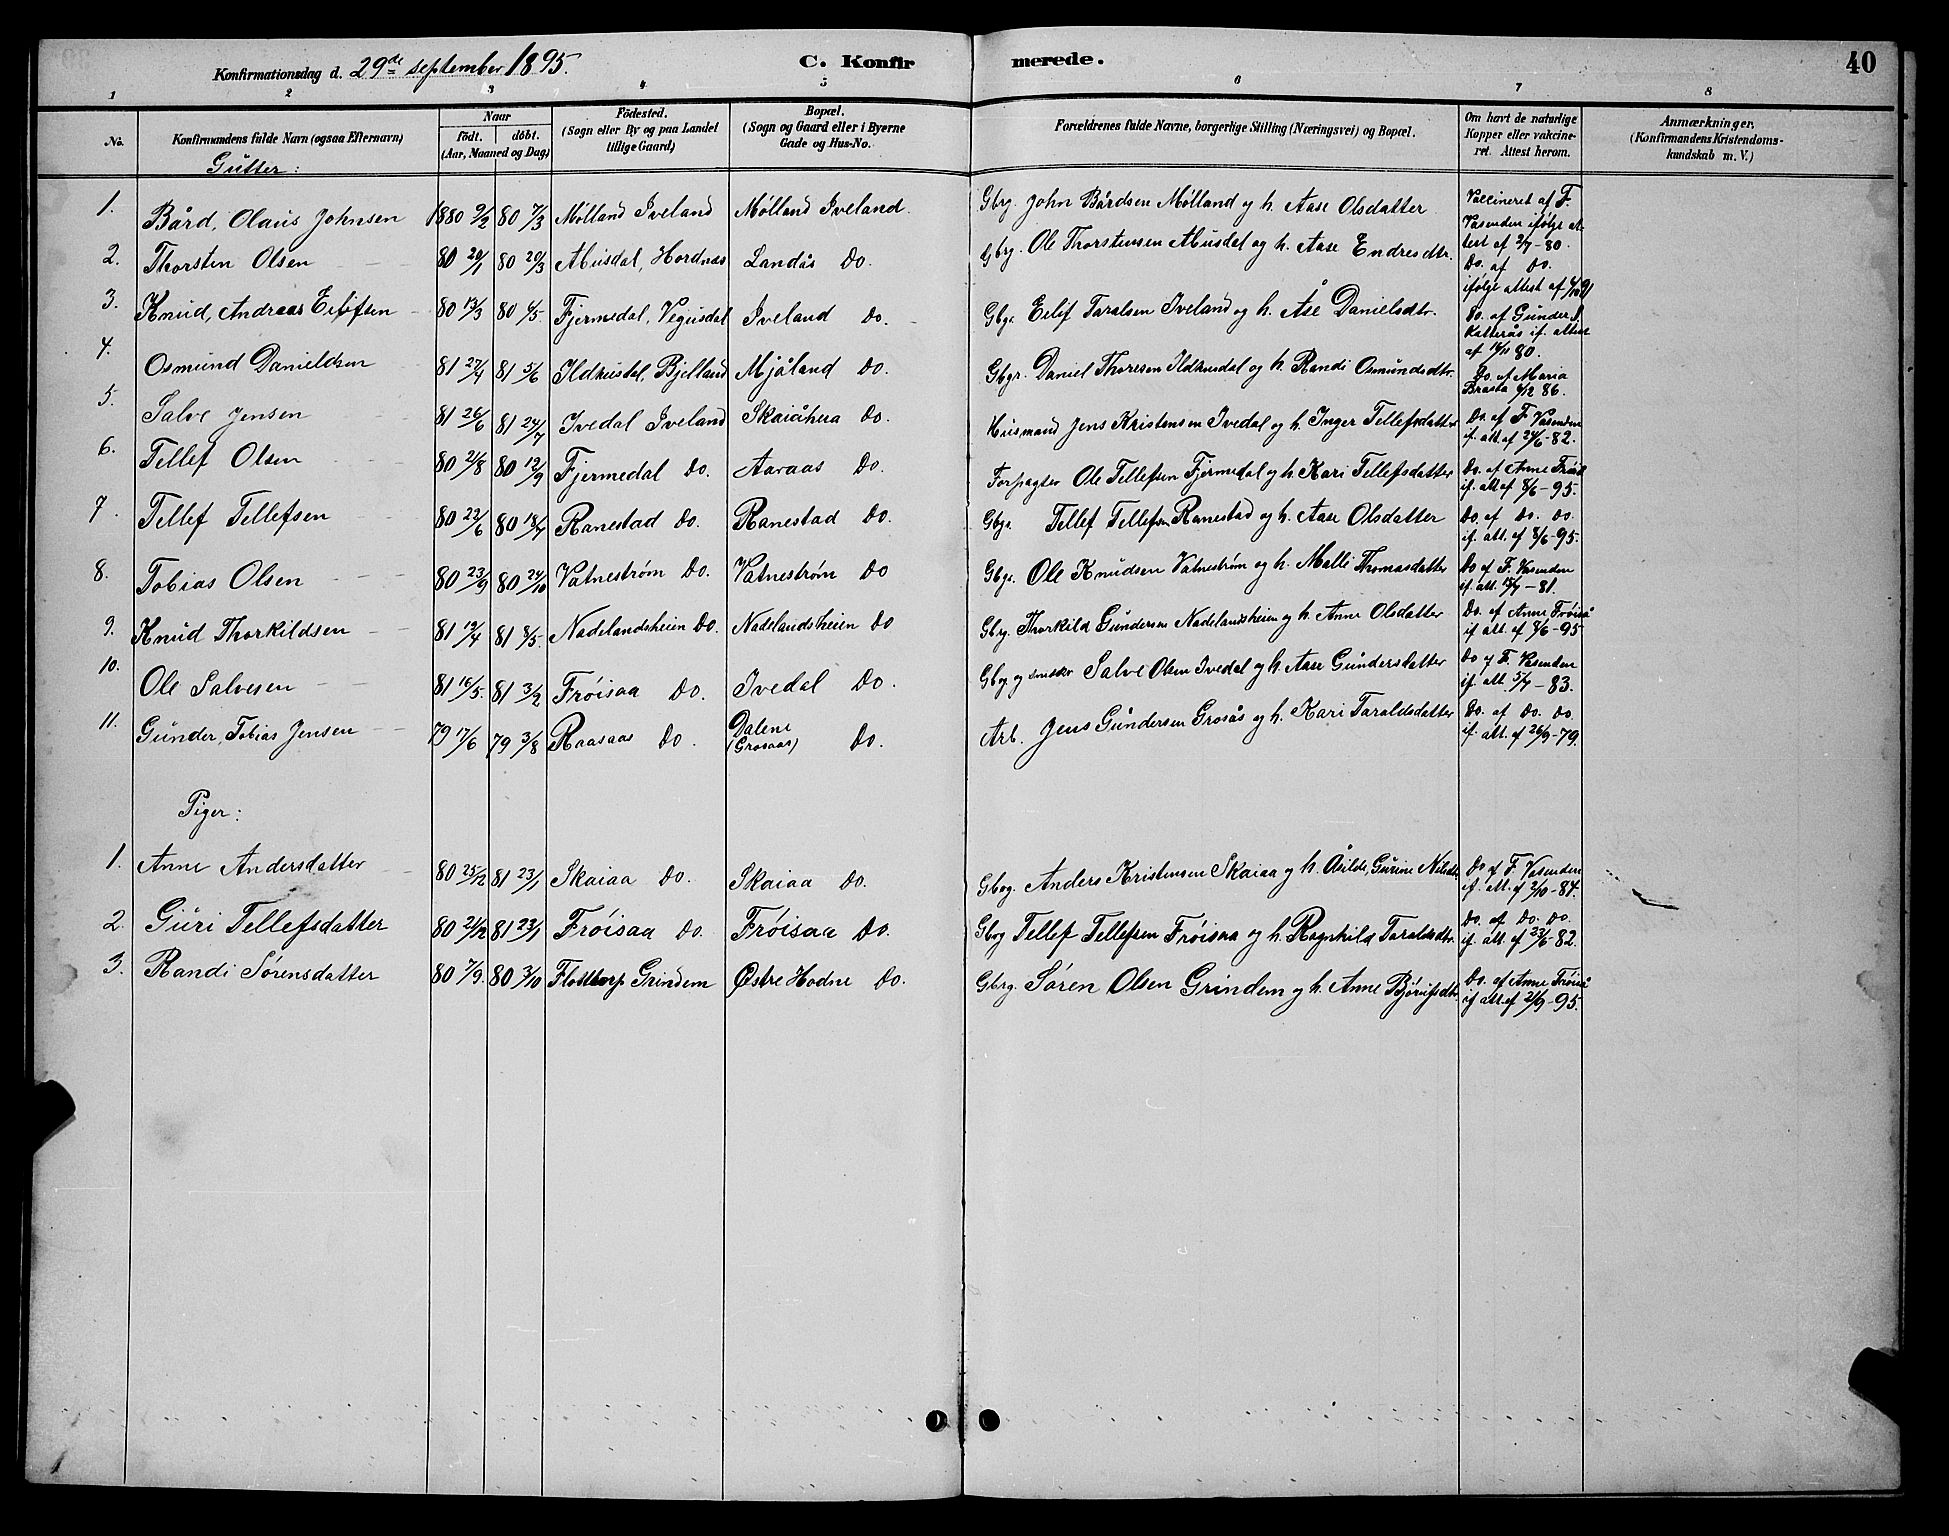 Konfirmationsdag d. 29de september 1895. C. Konfir merede. 40
1 2 3 4 5 6 7 8
No. Konfirmandens fulde Navn (ogsaa Efternavn) Naar født. døbt. (Aar, Maaned og Dag) Fødested. (Sogn eller By og paa Landet tillige Gaard) Bopæl. (Sogn og Gaard eller i Byerne Gade og Hus-No. Forældrenes fulde Navne, borgerlige Stilling (Næringsvei) og Bopæl. Om havt de naturlige Kopper eller vakcineret. Attest herom. Anmærkninger. (Konfirmandens Kristendomskundskab m. V.)
Gutter:
1. Bård, Olaus Johnsen 1880 9/2 80 7/3 Mølland Iveland Mølland Iveland. Gbrg. John Bårdsen Mølland og h. Aase Olsdatter Vaccineret af F. Vasenden ifølge attest af 2/7-80.
2. Thorsten Olsen 80 20/1 80 20/3 Musdal, Hordnes Landås Do. Gbrg. Ole Thorstensen Musdal og h. Aase Endresdtr. Do. af Do. ifølge attest af
3. Knud, Andreas Eilifsen 80 13/3 80 4/5 Fjermedal, Vegusdal Iveland Do. Gbgr. Eilif Taralsen Iveland og h. Åse Danielsdtr. Do. af Gunder Katterås if. attest af 14/11 80.
4. Osmund Danieldsen 81 27/4 81 5/6 Ildhusdal, Bjelland Mjåland Do. Gbgr. Daniel Thoresen Ildhusdal og h. Randi Osmundsdtr. Do. af Maria 6/12 86.
5. Salve Jensen 81 26/6 81 24/7 Ivedal Iveland Skaiåheia Do. Husmand Jens Kristensen Ivedal og h. Inger Tellefsdatter Do af F Vasenden if. att. af 24/6-82.
6. Tellef Olsen 80 21/8 80 12/9 Fjermedal Do. Aaraas Do. Forpagter Ole Tellefsen Fjermedal og h. Kari Tellefsdatter Do. af Anne Frøiså if. att af 8/6-95.
7. Tellef Tellefsen 80 23/6 80 18/7 Ranestad Do. Ranestad Do. Gbgr. Tellef Tellefsen Ranestad og h. Aase Olsdatter Do. af Do. Do. if. att. af 8/6-95.
8. Tobias Olsen 80 23/9 80 24/10 Vatnestrøm Do. Vatnestrøm Do Gbgr. Ole Knudsen Vatnestrøm og h. Malli Thomasdatter Do af F. Vasenden if. att. 15/7-81.
9. Knud Thorkildsen 81 12/4 81 8/5. Nadelandsheien Do. Nadelandsheien Do Gbrg. Thorkild Gundersen Nadelandsheien og h. Anne Olsdatter Do. af Anne Frøiså if att. af 8/6-95
10. Ole Salvesen 81 16/5. 81 3/2 Frøisaa Do. Ivedal Do. Gbrg og snedker Salve Olsen Ivedal og h. Aase Gundersdatter Do af F. Vasenden if. att. 5/7-83.
11. Gunder, Tobias Jensen 79 17/6 79 3/8 Raasaas Do. Dalene (Grosaas) Do. Arb. Jens Gundersen Grosås og h. Kari Taraldsdatter Do. af Do. Do. if. att. af 26/9-79.
Piger:
1. Anne Andersdatter 80 25/12 81 23/1 Skaiaa Do. Skaiaa Do. Gbrg. Anders Kristensen Skaiaa og h. Åsilde, Gurine Nilsdtr. Do af F. Vasenden if. att. af 2/10-84.
2. Guri Tellefsdatter 80 21/12 81 23/1 Frøisaa Do. Frøisaa Do. Gbrg Tellef Tellefsen Frøisaa og h. Ragnhild Taraldsdtr. Do. af Do. Do. if. att. af 23/6-82.
3. Randi Sørensdatter 80 7/9. 80 3/10 Flottorp Grindem Østre Hodne Do. Gbrg. Søren Olsen Grindem og h. Anne Do. af Anne Frøiså if att. af 2/9-95.